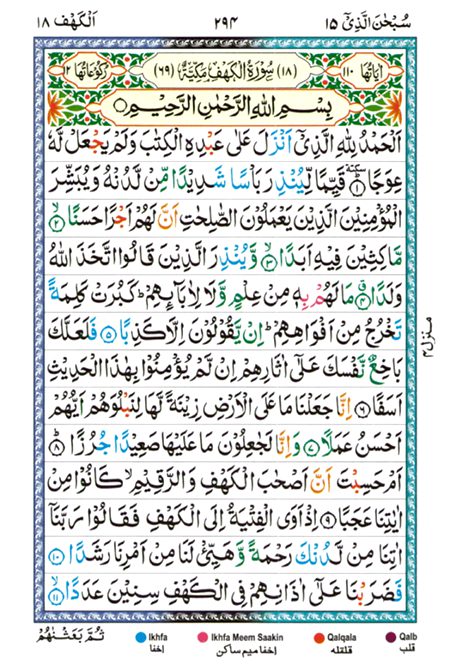 سُبْحٰنَ الَّذِیْۤ ۱۵ ۲۹۴ اَلْكَهْف ۱۸
اٰیَاتُهَا ۱۱۰ (۱۸) سُوْرَةُ الْكَهْفِ مَكِّیَّةٌ (۶۹) رُكُوْعَاتُهَا ۱۲
بِسْمِ اللّٰهِ الرَّحْمٰنِ الرَّحِیْمِ
اَلْحَمْدُ لِلّٰهِ الَّذِیْۤ اَنْزَلَ عَلٰى عَبْدِهِ الْكِتٰبَ وَلَمْ یَجْعَلْ لَّهٗ
عِوَجًا ؕ۱ سكتة قَیِّمًا لِّیُنْذِرَ بَاْسًا شَدِیْدًا مِّنْ لَّدُنْهُ وَیُبَشِّرَ
الْمُؤْمِنِیْنَ الَّذِیْنَ یَعْمَلُوْنَ الصّٰلِحٰتِ اَنَّ لَهُمْ اَجْرًا حَسَنًا ۲
مَّاكِثِیْنَ فِیْهِ اَبَدًا ۳ وَّیُنْذِرَ الَّذِیْنَ قَالُوا اتَّخَذَ اللّٰهُ
وَلَدًا ۴ مَا لَهُمْ بِهٖ مِنْ عِلْمٍ وَّلَا لِاٰبَآىِٕهِمْ ؕ كَبُرَتْ كَلِمَةً
تَخْرُجُ مِنْ اَفْوَاهِهِمْ ؕ اِنْ یَّقُوْلُوْنَ اِلَّا كَذِبًا ۵ فَلَعَلَّكَ
بَاخِعٌ نَّفْسَكَ عَلٰۤى اٰثَارِهِمْ اِنْ لَّمْ یُؤْمِنُوْا بِهٰذَا الْحَدِیْثِ
اَسَفًا ۶ اِنَّا جَعَلْنَا مَا عَلَى الْاَرْضِ زِیْنَةً لَّهَا لِنَبْلُوَهُمْ اَیُّهُمْ
اَحْسَنُ عَمَلًا ۷ وَاِنَّا لَجٰعِلُوْنَ مَا عَلَیْهَا صَعِیْدًا جُرُزًا ۸
اَمْ حَسِبْتَ اَنَّ اَصْحٰبَ الْكَهْفِ وَالرَّقِیْمِ كَانُوْا مِنْ
اٰیٰتِنَا عَجَبًا ۹ اِذْ اَوَى الْفِتْیَةُ اِلَى الْكَهْفِ فَقَالُوْا رَبَّنَاۤ
اٰتِنَا مِنْ لَّدُنْكَ رَحْمَةً وَّهَیِّئْ لَنَا مِنْ اَمْرِنَا رَشَدًا ۱۰
فَضَرَبْنَا عَلٰۤى اٰذَانِهِمْ فِی الْكَهْفِ سِنِیْنَ عَدَدًا ۱۱
منزل ۴
ثُمَّ بَعَثْنٰهُمْ
Ikhfa Ikhfa Meem Saakin Qalqala Qalb
اخفا اخفا میم ساکن قلقله قلب